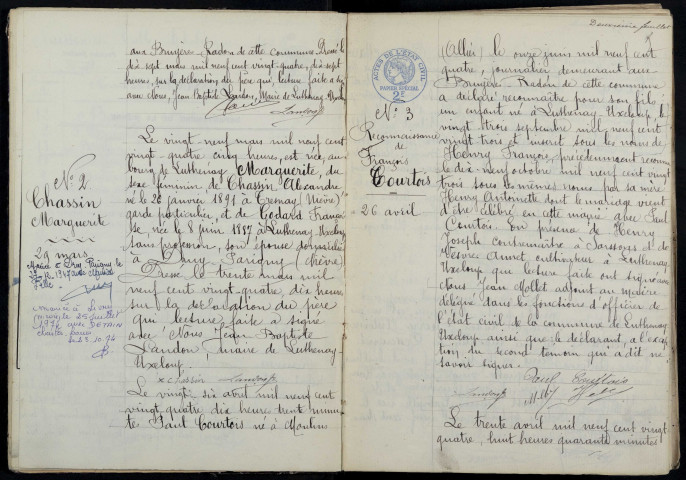 aux Bruyère-Radon de cette commune. Dressé le
dix sept mars mil neuf cent vingt-quatre, dix sept
heures, sur la déclaration du père qui, lecture faite a signé
avec Nous, Jean Baptiste Landon, Maire de Luthenay-Uxeloup
Landon
N° 2
Chassin
Marguerite
29 mars
Le vingt neuf mars mil neuf cent
vingt-quatre cinq heures, est née, au
bourg de Luthenay Marguerite, du
sexe féminin, de Chassin Alexandre
né le 20 janvier 1891 à Tresnay (Nièvre)
garde particulier, et de Godard Françoi
se née le 8 juin 1887 à Luthenay-Uxeloup
sans profession, son épouse domiciliés
à Druy Parigny (Nièvre)
Dressé le trente mars mil
neuf cent vingt-quatre, dix heures
sur la déclaration du père
qui lecture faite a signé
avec Nous Jean Baptiste
Landon, maire de Luthenay-
Uxeloup.
Chassin Landon
Le vingt six avril mil neuf cent
vingt quatre, dix heure trente minu
te Paul Courtois né à Moulins
Deuxième feuillet
ACTES DE L'ETAT CIVIL
PAPIER SPECIAL
N° 3
Reconnaissance
de
François
Courtois
26 avril
(Allier) le onze juin mil neuf cent
quatre, journalier demeurant aux
Bruyère-Radon de cette commune
a déclaré reconnaître pour son fils
un enfant né à Luthenay Uxeloup, le
vingt trois septembre mil neuf cent
vingt trois et inscrit sous les noms de
Henry François, précédemment reconnu
le dix-neuf octobre mil neuf cent vingt
trois sous les mêmes noms par sa mère
Henry Antoinette dont le mariage vient
d'être célébré en cette mairie avec Paul
Courtois. En présence de Henry
Joseph contremaître à et de
Amet cultivateur à Luthenay
Uxeloup qui lecture faite ont signé avec
Nous Jean Mollet adjoint au maire
délégué dans les fonctions d'officier de
l'état civil de la commune de Luthenay
Uxeloup ainsi que le déclarant, à l'excep
tion du second témoin qui a dit ne
savoir signer.
Paul Courtois
Le trente avril mil neuf cent vingt
quatre, huit heures quarante minutes